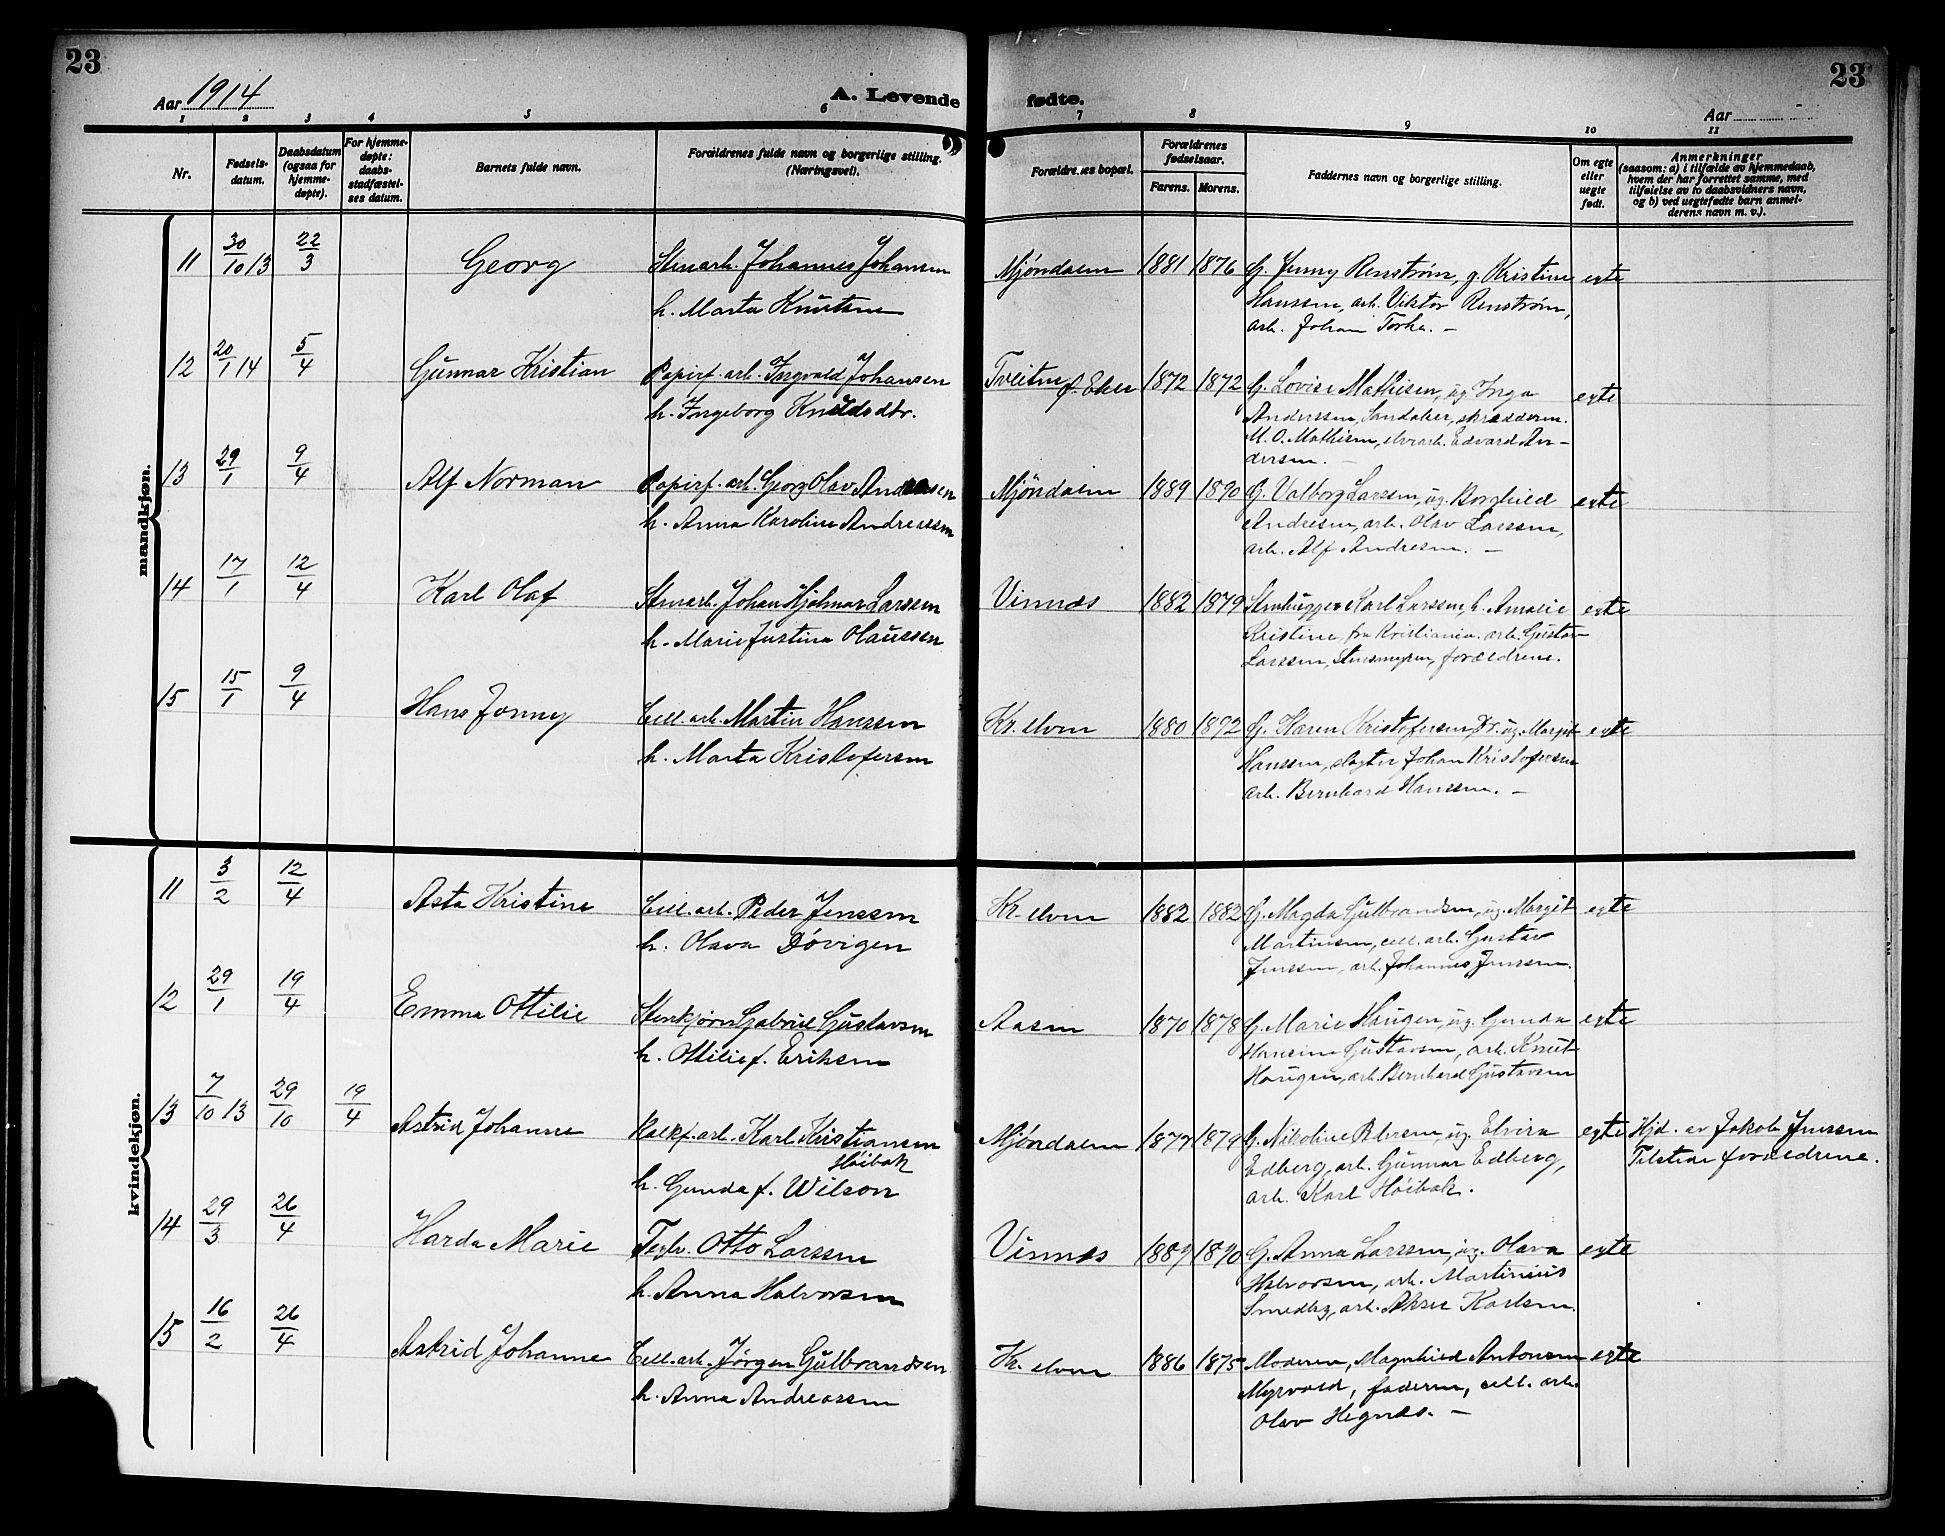 23
23
Aar 1914
A. Levende
fødte.
Aar
1 2 3 4 5 6 7 8 9 10 11
Nr.
Fødsels-
datum.
Daabsdatum
(ogsaa for
hjemme-
døpte).
For hjemme-
døpte:
daabs-
stadfæstel-
ses datum.
Barnets fulde navn.
Forældrenes fulde navn og borgerlige stilling.
(Næringsvei).
Forældrenes bopæl.
Forældrenes
fødselsaar.
Farens. Morens.
Faddernes navn og borgerlige stilling.
Om egte
eller
uegte
født.
Anmerkninger
(saasom: a) i tilfælde av hjemmedaab,
hvem der har forrettet samme, med
tilføielse av to daabsvidners navn,
og b) ved uegtefødte barn anmel-
derens navn m. v.).
mandkjøn.
11 30/10 13 22/3 Georg Stenarb. Johannes Johansen Mjøndalen 1881 1876 G. Jenny Renstrøm, g. Kristine egte
h. Marta Knutsen Hanssen, arb. Viktor Renstrøm,
arb. Johan Torke. –
12 20/1 14 5/4 Gunnar Kristian Papirf. arb. Ingvald Johansen Tveiten f. Eker 1872 1872 G. Lovise Mathisen, ug. Inga egte
h. Ingeborg Knudsdtr. Anderssen, Sandaker, skrædderm.
M. O. Mathisen, elvearb. Edvard An-
dersen. –
13 29/1 9/4 Alf Norman Papirf. arb. Georg Olav Andreasen Mjøndalen 1889 1890 G. Valborg Larssen, ug. Borghild egte
h. Anna Karoline Andreassen Andresen, arb. Olav Larssen,
arb. Alf Andresen. –
14 17/1 12/4 Karl Olaf Stenarb. Johan Hjalmar Larssen Vinnæs 1882 1879 Stenhugger Karl Larssen, h. Amalie egte
h. Marie Justina Olaussen Kristine, fra Kristiania. arb. Gustav
Larssen, Stensmyren, forældrene.
15 15/1 9/4 Hans Jonny Cell. arb. Martin Hanssen Kr. elven 1880 1892 G. Karen Kristofersen, ug. Margit egte
h. Marta Kristofersen Hanssen, slagter Johan Kristofersen
arb. Bernhard Hanssen. –
kvindekjøn.
11 3/2 12/4 Asta Kristine Cell. arb. Peder Jenssen Kr. elven 1882 1882 G. Magda Gulbrandsen, ug. Margit egte
h. Olava Døvigen Martinsen, cell. arb. Gustav
Jenssen, arb. Johannes Jenssen.
12 29/1 19/4 Emma Ottilie Stenkjører Gabriel Gustavsen Aasen 1870 1878 G. Marie Haugen, ug. Gunda egte
h. Ottilie f. Eriksen Hansine Gustavsen, arb. Knut
Haugen, arb. Bernhard Gustavsen
13 7/10 13 29/10 19/4 Astrid Johanne Kalkf. arb. Karl Kristiansen Mjøndalen 1877 1879 G. Nikoline Petersen, ug. Elvira egte Hjd. av Jakob Jenssen
Høibak Edberg, arb. Gunnar Edberg, Tilstede forældrene.
h. Gunda f. Wilson arb. Karl Høibak.
14 29/3 26/4 Harda Marie Teglv. Otto Larssen Vinnæs 1889 1890 G. Anna Larssen, ug. Olava egte
h. Anna Halvorsen Halvorsen, arb. Martinius
Smedbg, arb. Aksel Karlsen.
15 16/2 26/4 Astrid Johanne Cell. arb. Jørgen Gulbrandsen Kr. elven 1886 1875 Moderen, Magnhild Antonsen egte
h. Anna Andreassen Myrvold, faderen, cell. arb.
Olav Hegnæs. –